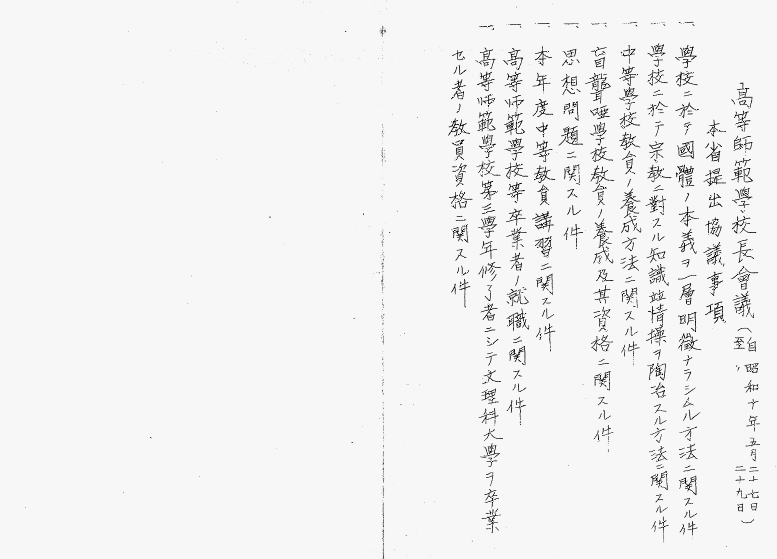 高等師範學校長會議（自昭和十年五月二十七日
至〃二十九日）
本省提出協議事項
一、學校ニ於テ國體ノ本義ヲ一層明徵ナラシムル方法ニ関スル件
一、學校ニ於テ宗教ニ對スル知識竝情操ヲ陶冶スル方法ニ関スル件
一、中等學校教員ノ養成方法ニ関スル件
一、盲聾唖學校教員ノ養成及其資格ニ関スル件
一、思想問題ニ関スル件
一、本年度中等教員講習ニ関スル件
一、高等師範學校等卒業者ノ就職ニ関スル件
一、高等師範學校第三學年修了者ニシテ文理科大學ヲ卒業
セル者ノ教員資格ニ関スル件